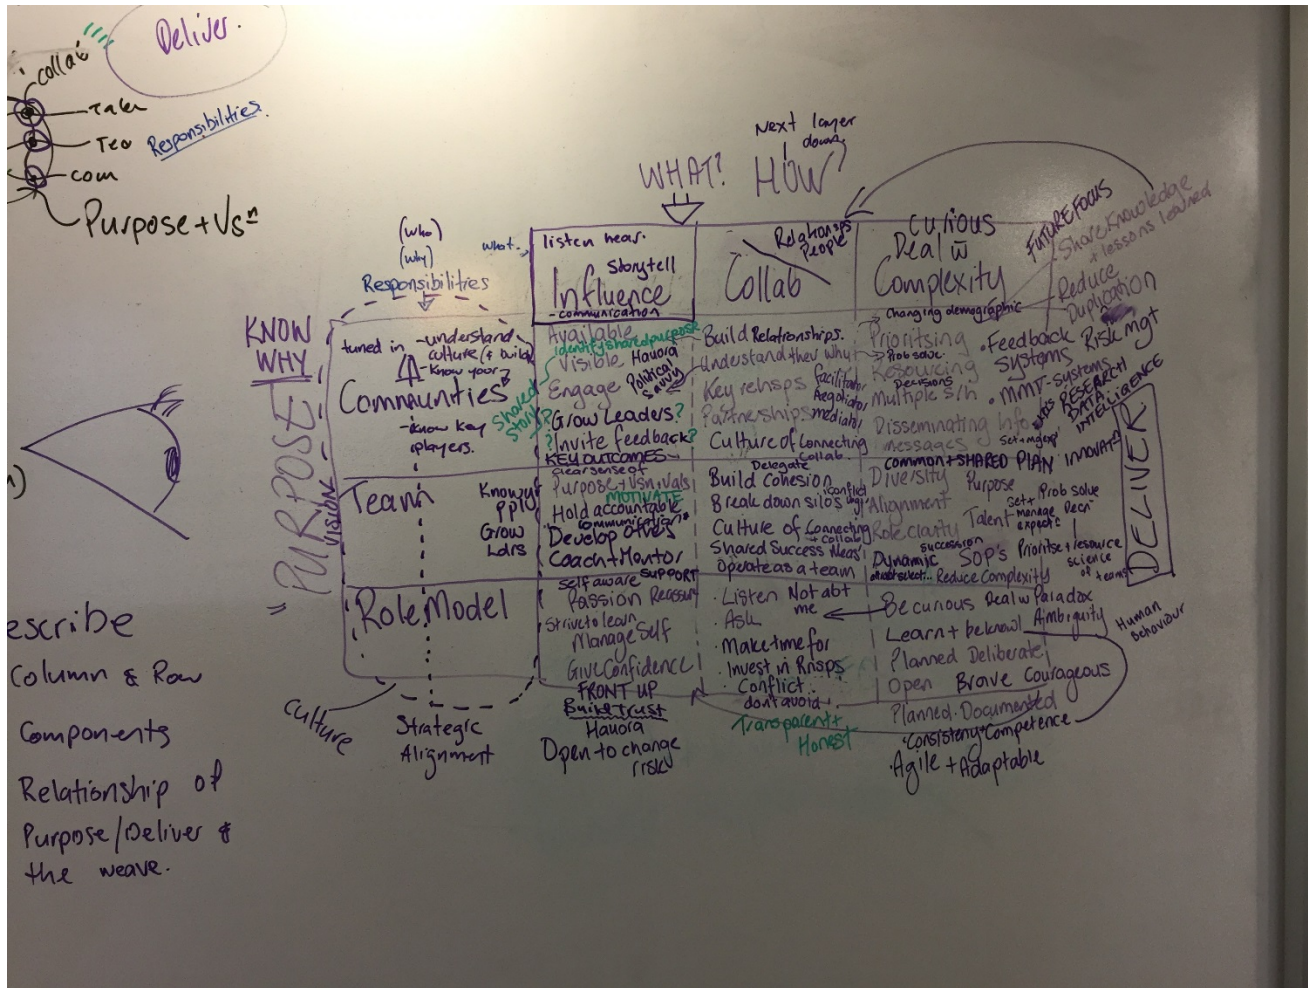 Deliver.
collab
Responsibilities.
com
Purpose + Vsn
escribe
Column & Row
Components
Relationship of
Purpose/Deliver &
the weave.
Next layer
down
WHAT? HOW
(who)
(why)
Responsibilities
what.
listen hear.
Storytell
Influence
- communication
Relationsps
People
Collab
Curious
Deal w
Complexity
FUTURE FOCUS
Share Knowledge
+ lessons learned
Reduce
Duplication
KNOW
WHY
PURPOSE
VISION
tuned in
- understand
culture (+ build)
- Know your
Communities
- know key
players.
Shared
Story
Available
identify shared purpose
Visible Hauora
Engage Political
savvy
? Grow Leaders?
? Invite feedback?
KEY OUTCOMES
Build Relationships.
Understand their why
Key relnsps
Partnerships
facilitator
negotiator
mediator
Culture of Connecting
Collab.
Changing demographic
Prioritsing
Prob solve.
Resourcing
Decisions
Multiple s/h
Disseminating Info
messages
• Feedback
Systems
Risk mgt
• MMT-Systems
RESEARCH
DATA
INTELLIGENCE
common + SHARED PLAN
DELIVER
Team
Grow
Ldrs
clear sense of
Purpose + Vsn, vals
MOTIVATE
Hold accountable
communication
Develop others
Coach + Mentor
SUPPORT
Delegate
Build cohesion
Break down silos
conflict
Culture of Connecting
+ collab
Shared Success
Operate as a team
Diversity
Purpose
Alignment
Talent
Role clarity
succession
Dynamic
SOP's
Reduce Complexity
set +
manage
Prob solve
Prioritse + resource
science
of teams
Role Model
self aware
Passion
Strive to learn
Manage Self
Give Confidence
FRONT UP
Build Trust
Hauora
Open to change
risk
• Listen Not abt
me
Ask
• Make time for
• Invest in Rnsps
• Conflict..
don't avoid.
Transparent +
Honest
Be curious Deal w Paradox
Ambiguity
Human
Behaviour
Planned Deliberate
Open Brave Courageous
Planned. Documented
"Consistency" Competence
• Agile + Adaptable
Culture
Strategic
Alignment